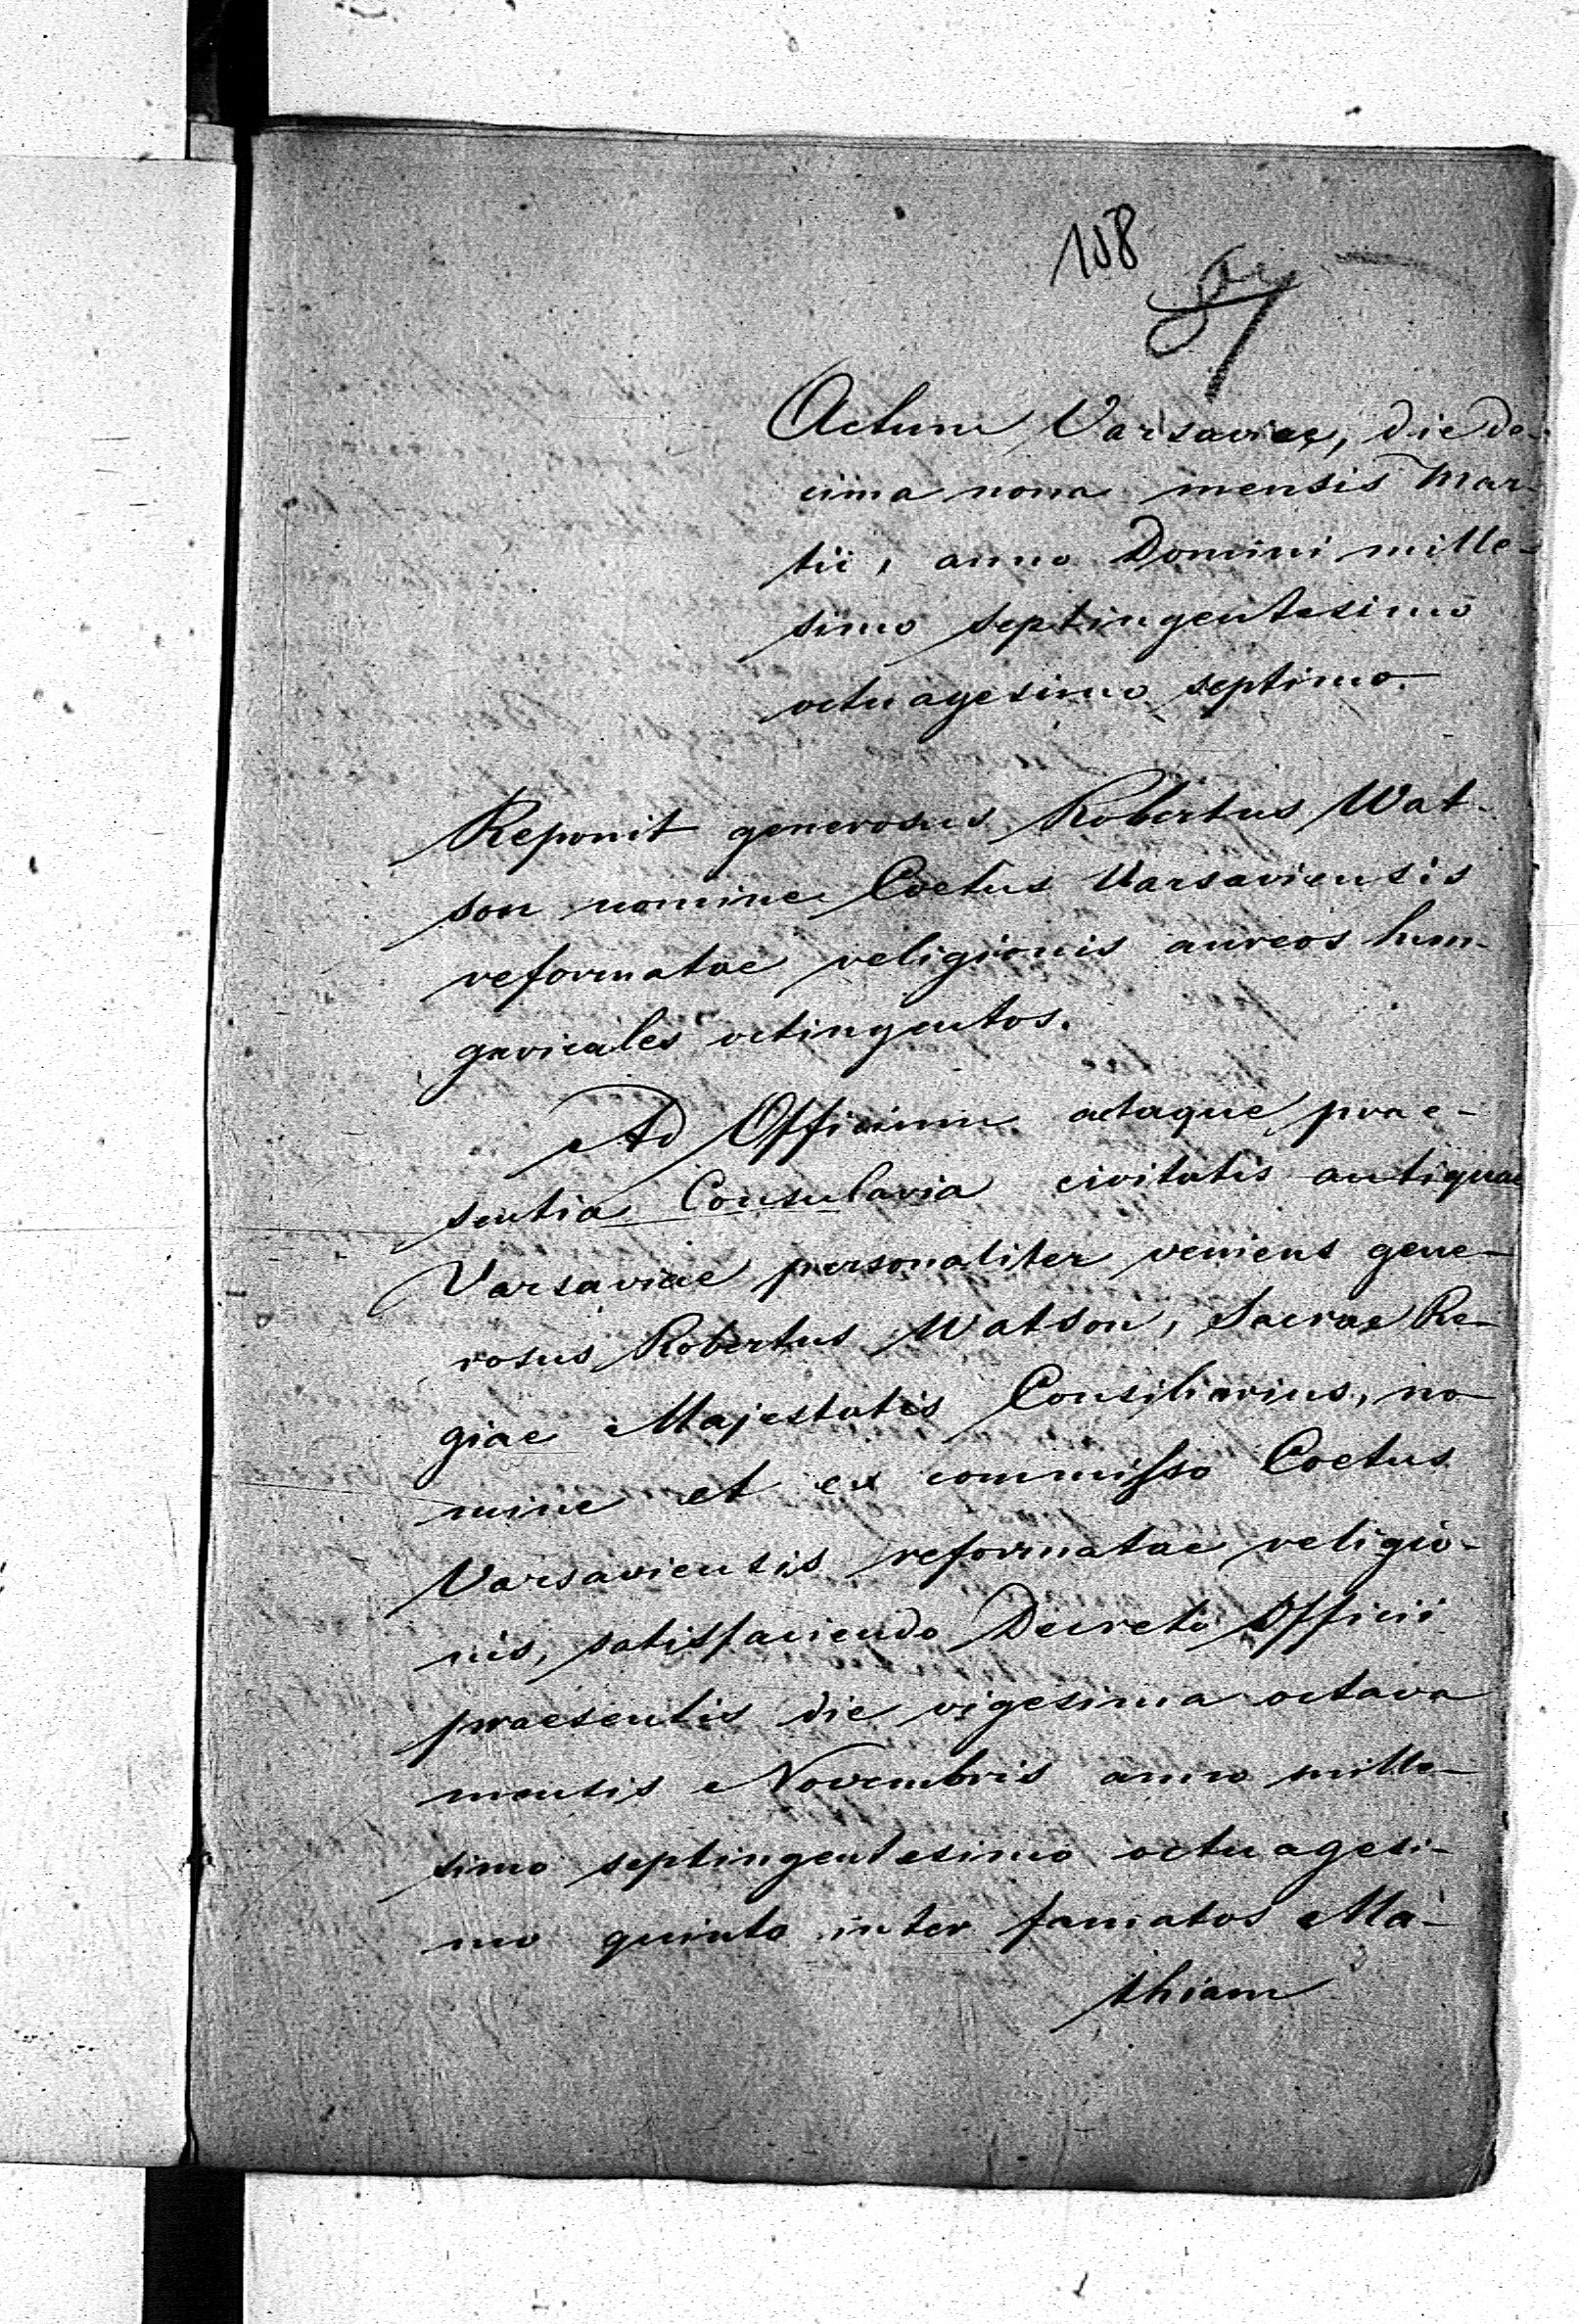 108
57
Actum Varsaviae, die de-
cima nona mensis Mar-
tii, anno Domini mille-
simo septingentesimo
octuagesimo septimo.
Reponit generosus Robertus Wat-
son nomine Coetus Varsaviensis
reformatae religionis aureos hun-
garicales octingentos.
Ad Officium actaque prae-
sentia Consularia civitatis antiquae
Varsaviae personaliter veniens gene-
rosus Robertus Watson, Sacrae Re-
giae Majestatis Consiliarius, no-
mine et ex commisso Coetus
Varsaviensis reformatae religio-
nis, satisfaciendo Decreto Officii
praesentis die vigesima octava
mensis Novembris anno mille-
simo septingentesimo octuagesi-
mo quinto inter famatos Ma-
thiam